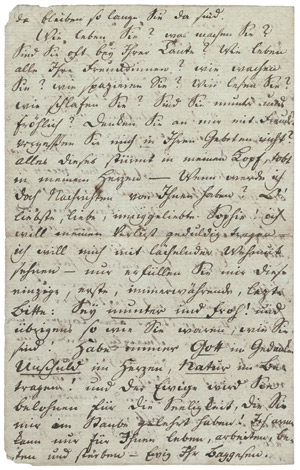 de bleiben so lange Sie da sind.
Wie leben Sie? was machen Sie?
Sind Sie oft bey Ihrer Laute? Wie leben
alle Ihre Freundinnen? wie wachen
Sie? wie spazieren Sie? Wie lesen Sie?
wie schlafen Sie? Sind Sie munter und
fröhlich? Denken Sie an mich mit
vergessen Sie mich in Ihren Gebeten nicht?
alles dieses kömmt in meinen Kopf, tobt
in meinem Herzen — Wenn werde ich
doch Nachrichten von Ihnen haben? O!
liebste, liebe, innig geliebte Sophie! ich
will meinen Verlust geduldig tragen
ich will mich mit lächelnder Wehmuth
sehnen — nur erfüllen Sie mir diese
einzige, erste, immerwährende, letzte
Bitte: Sey munter und froh! und
übrigens so wie Sie waren, wie Sie
sind! Habe immer Gott in Gedanken
Unschuld im Herzen, Natur im Be-
tragen! und der Ewige wird Sie
belohnen für die Seeligkeit, die Sie
mir im Staube gelehrt haben!
kann nur für Ihnen leben, arbeiten, be-
ten und sterben — Ewig Ihr Baggesen.